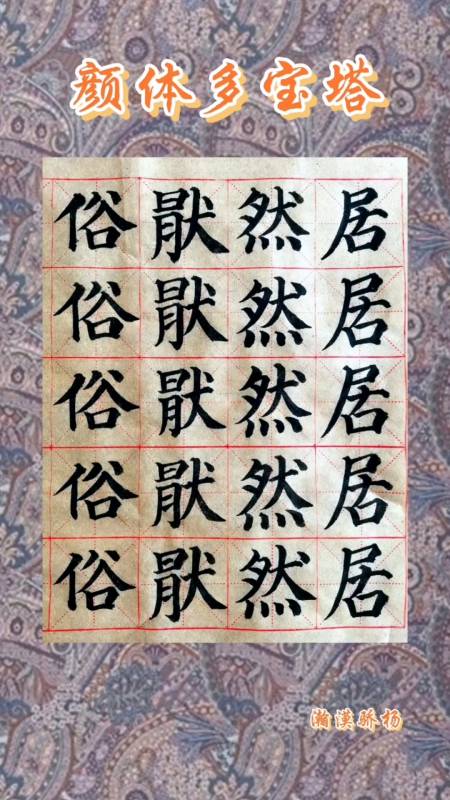 颜体多宝塔
居然猒俗
居然猒俗
居然猒俗
居然猒俗
居然猒俗
瀚漠骄杨